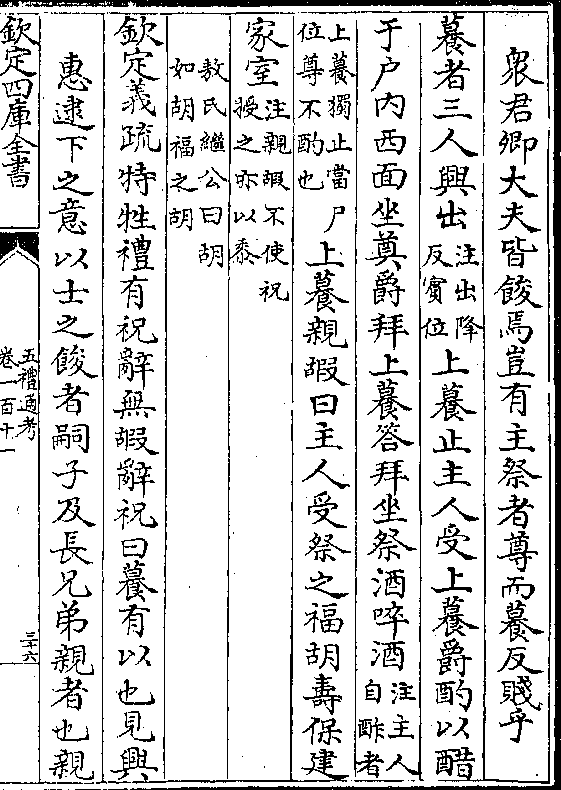 衆君卿大夫皆餕焉豈有主祭者尊而䕩反賤乎
䕩者三人興出注出降反賓位上䕩止主人受上䕩爵酌以醋
于户内西面坐奠爵拜上䕩答拜坐祭酒啐酒注主人自酢者
上䕩獨止當尸位尊不酌也上䕩親嘏曰主人受祭之福胡壽保建
家室注親嘏不使祝授之亦以黍
敖氏繼公曰胡如胡福之胡
欽定義疏特牲禮有祝辭無嘏辭祝曰䕩有以也見興
惠逮下之意以士之餕者嗣子及長兄弟親者也親
欽定四庫全書
五禮通考
卷一百十一
三十六